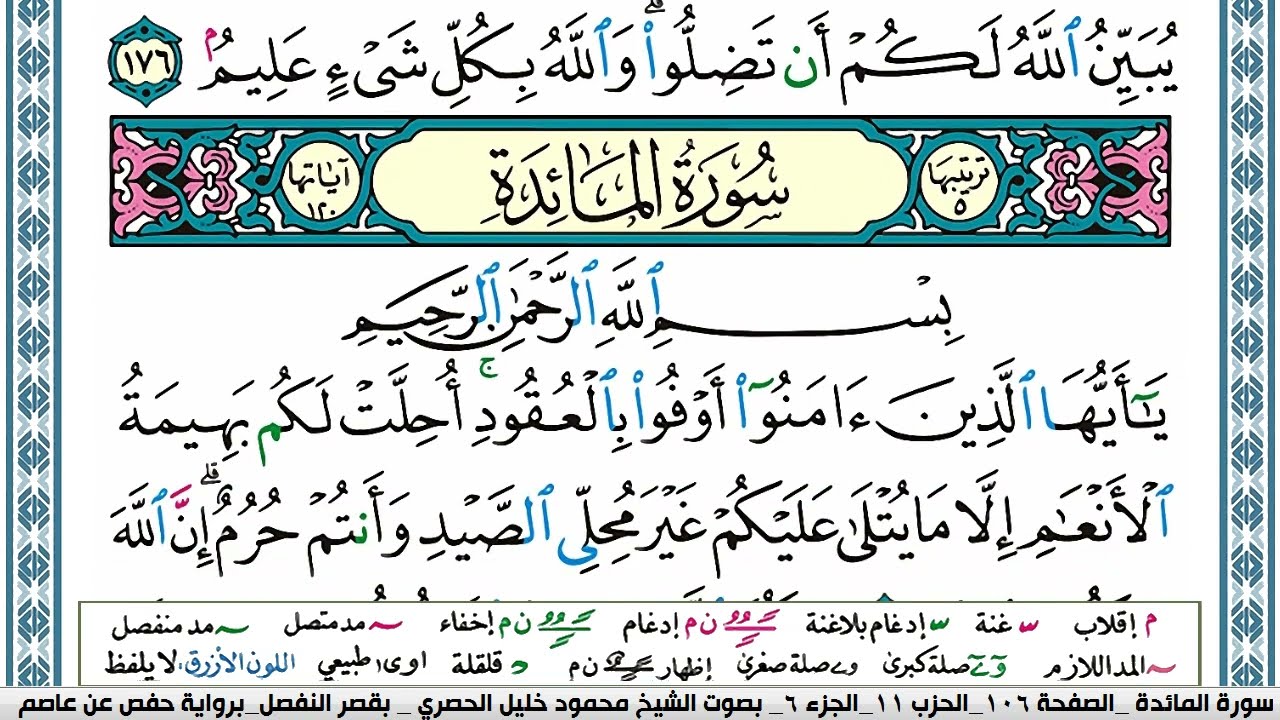 يُبَيِّنُ ٱللَّهُ لَكُمْ أَن تَضِلُّوا۟ ۗ وَٱللَّهُ بِكُلِّ شَىْءٍ عَلِيمٌۢ ١٧٦
ترتيبها ٥ سُورَةُ المَائِدَةِ آياتها ١٢٠
بِسْمِ ٱللَّهِ ٱلرَّحْمَٰنِ ٱلرَّحِيمِ
يَٰٓأَيُّهَا ٱلَّذِينَ ءَامَنُوٓا۟ أَوْفُوا۟ بِٱلْعُقُودِ ۚ أُحِلَّتْ لَكُم بَهِيمَةُ
ٱلْأَنْعَٰمِ إِلَّا مَا يُتْلَىٰ عَلَيْكُمْ غَيْرَ مُحِلِّى ٱلصَّيْدِ وَأَنتُمْ حُرُمٌ ۗ إِنَّ ٱللَّهَ
م إقلاب غنة إدغام بلاغنة ن م إدغام ن م إخفاء مد متصل مد منفصل
المد اللازم صلة كبرىٰ صلة صغرىٰ إظهار ن م قلقلة اوى طبيعي اللون الأزرق: لا يلفظ
سورة المائدة _الصفحة ١٠٦_الحزب ١١_الجزء ٦_ بصوت الشيخ محمود خليل الحصري _ بقصر النفصل_برواية حفص عن عاصم